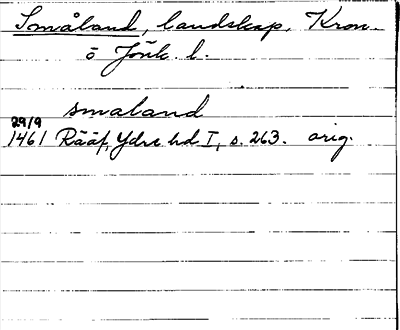 Småland, landskap, Kron.
o Jönk. l.
smaland
29/9
1461 Rääf, Ydre hd I, s. 263. orig.